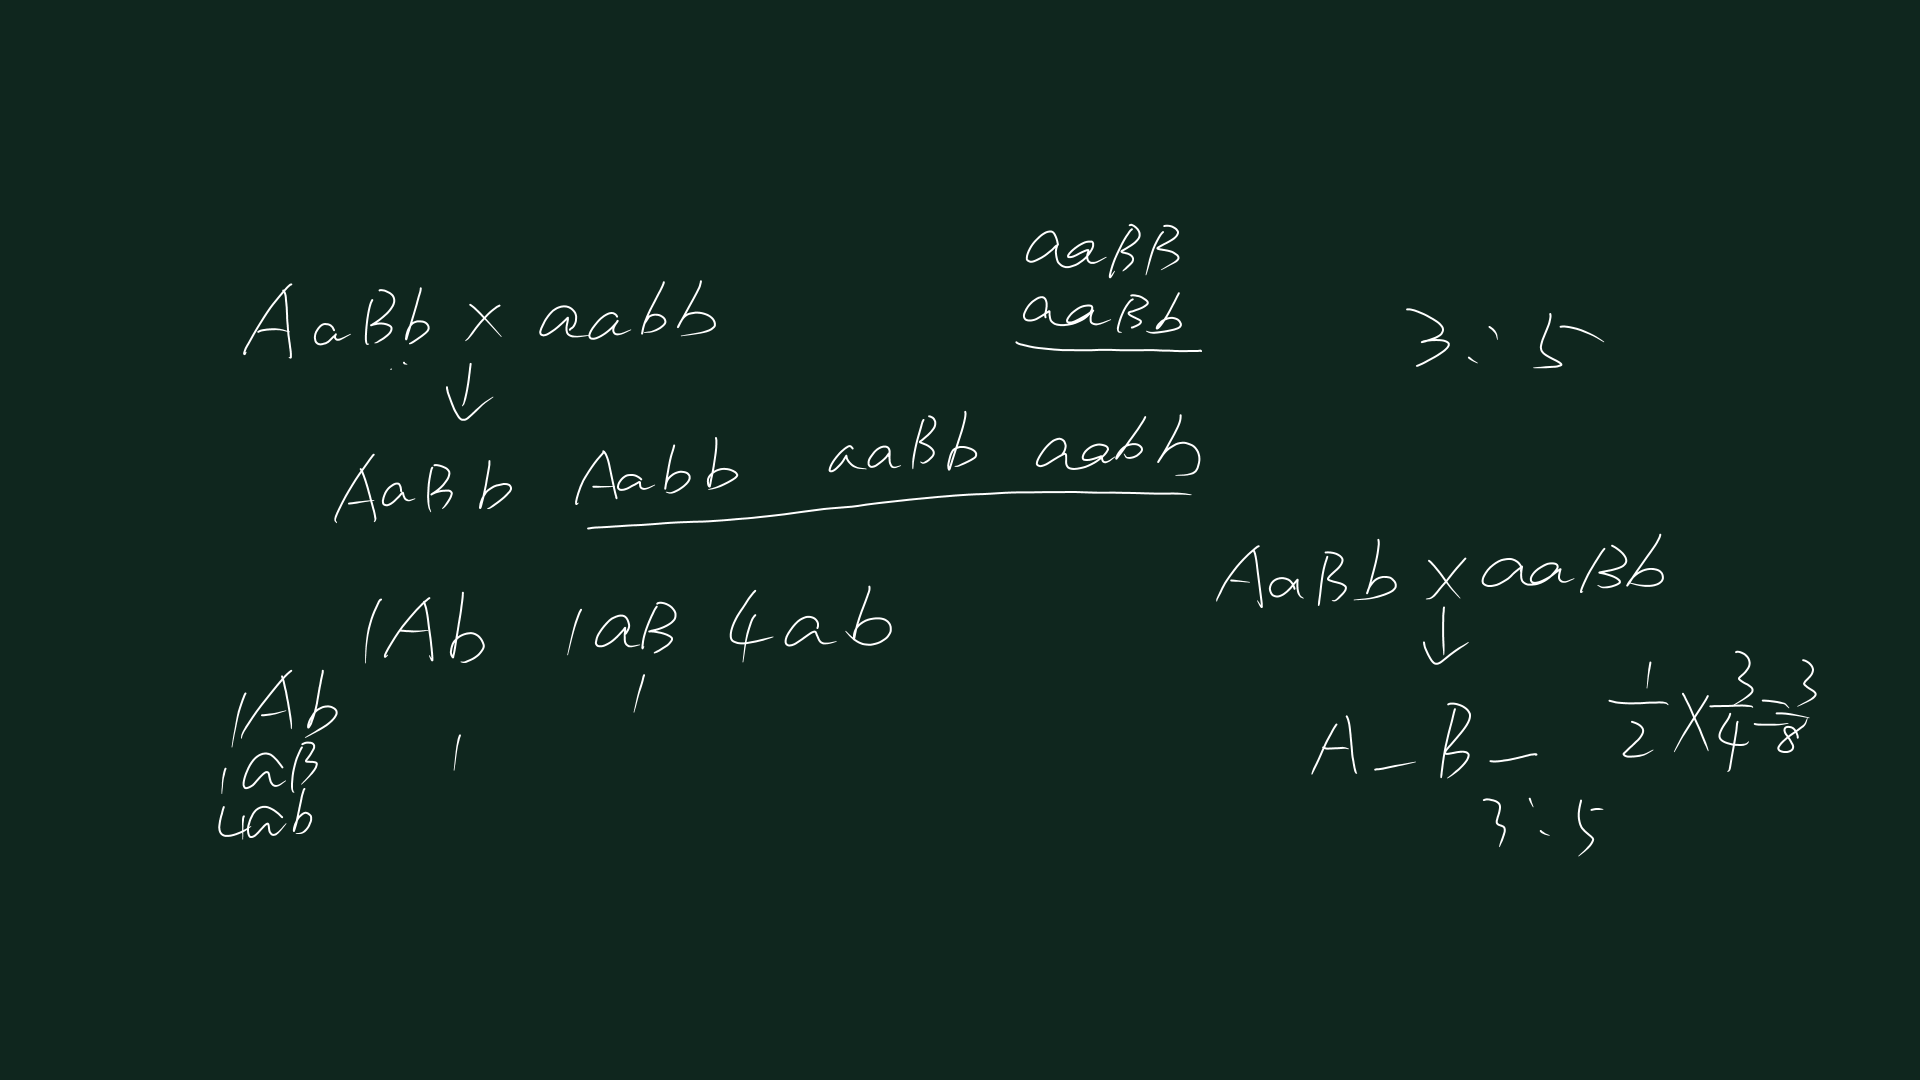 aaBB
aaBb
AaBb × aabb
3:5
↓
AaBb Aabb aaBb aabb
AaBb × aaBb
↓
1Ab 1aB 4ab
1/2 × 3/4 = 3/8
1Ab 1
A_B_
1aB 1
4ab
3:5